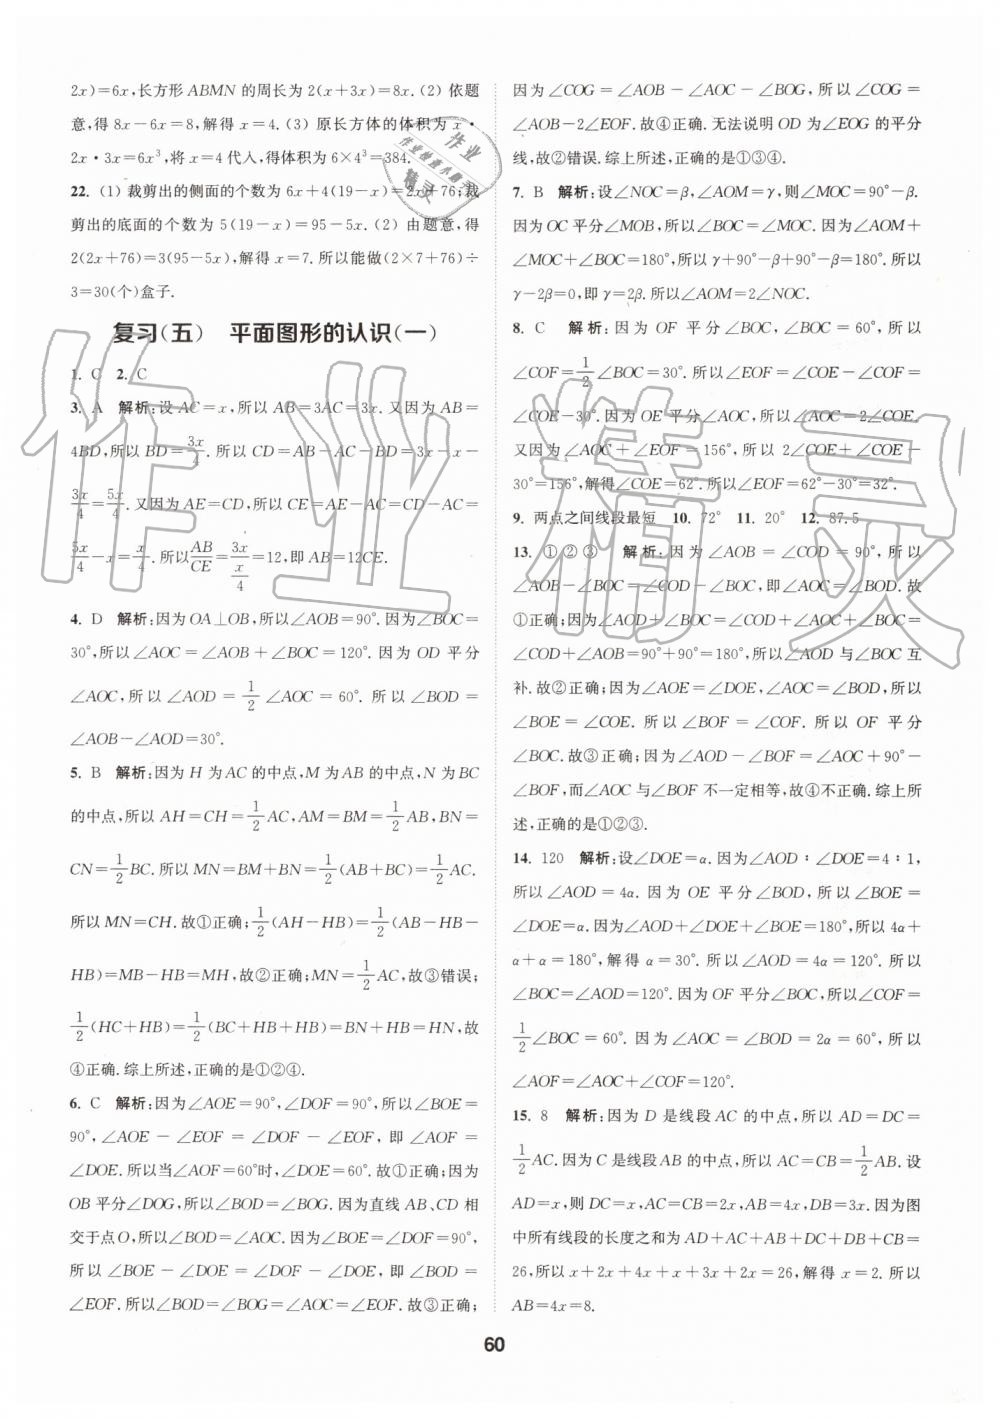 2x)=6x,长方形 ABMN 的周长为 2(x+3x)=8x.(2) 依题
意,得 8x-6x=8,解得 x=4.(3) 原长方体的体积为 x·
2x·3x=6x³,将 x=4 代入,得体积为 6×4³=384.
22. (1) 裁剪出的侧面的个数为 6x+4(19-x)=2x+76;裁
剪出的底面的个数为 5(19-x)=95-5x.(2) 由题意,得
2(2x+76)=3(95-5x),解得 x=7.所以能做(2×7+76)÷
3=30(个)盒子.
复习(五) 平面图形的认识(一)
1. C 2. C
3. A 解析:设 AC=x,所以 AB=3AC=3x.又因为 AB=
4BD,所以 BD=3x/4.所以 CD=AB-AC-BD=3x-x-
3x/4=5x/4.又因为 AE=CD,所以 CE=AE-AC=CD-AC=
5x/4-x=x/4.所以AB/CE=3x/(x/4)=12,即 AB=12CE.
4. D 解析:因为 OA⊥OB,所以∠AOB=90°.因为∠BOC=
30°,所以∠AOC=∠AOB+∠BOC=120°.因为 OD 平分
∠AOC,所以∠AOD=1/2∠AOC=60°.所以∠BOD=
∠AOB-∠AOD=30°.
5. B 解析:因为 H 为 AC 的中点,M 为 AB 的中点,N 为 BC
的中点,所以 AH=CH=1/2AC,AM=BM=1/2AB,BN=
CN=1/2BC.所以 MN=BM+BN=1/2(AB+BC)=1/2AC.
所以 MN=CH.故①正确;1/2(AH-HB)=1/2(AB-HB-
HB)=MB-HB=MH,故②正确;MN=1/2AC,故③错误;
1/2(HC+HB)=1/2(BC+HB+HB)=BN+HB=HN,故
④正确.综上所述,正确的是①②④.
6. C 解析:因为∠AOE=90°,∠DOF=90°,所以∠BOE=
90°,∠AOE-∠EOF=∠DOF-∠EOF,即∠AOF=
∠DOE.所以当∠AOF=60°时,∠DOE=60°.故①正确;因为
OB 平分∠DOG,所以∠BOD=∠BOG.因为直线 AB、CD 相
交于点 O,所以∠BOD=∠AOC.因为∠BOE=∠DOF=90°,
所以∠BOE-∠DOE=∠DOF-∠DOE,即∠BOD=
∠EOF.所以∠BOD=∠BOG=∠AOC=∠EOF.故③正确;
因为∠COG=∠AOB-∠AOC-∠BOG,所以∠COG=
∠AOB-2∠EOF.故④正确.无法说明 OD 为∠EOG 的平分
线,故②错误.综上所述,正确的是①③④.
7. B 解析:设∠NOC=β,∠AOM=γ,则∠MOC=90°-β.
因为 OC 平分∠MOB,所以∠BOC=∠MOC.因为∠AOM+
∠MOC+∠BOC=180°,所以γ+90°-β+90°-β=180°.所以
γ-2β=0,即γ=2β.所以∠AOM=2∠NOC.
8. C 解析:因为 OF 平分∠BOC,∠BOC=60°,所以
∠COF=1/2∠BOC=30°.所以∠EOF=∠COE-∠COF=
∠COE-30°.因为 OE 平分∠AOC,所以∠AOC=2∠COE.
又因为∠AOC+∠EOF=156°,所以 2∠COE+∠COE-
30°=156°,解得∠COE=62°.所以∠EOF=62°-30°=32°.
9. 两点之间线段最短 10. 72° 11. 20° 12. 87.5
13. ①②③ 解析:因为∠AOB=∠COD=90°,所以
∠AOB-∠BOC=∠COD-∠BOC,即∠AOC=∠BOD.故
①正确;因为∠AOD+∠BOC=∠COD+∠AOC+∠BOC=
∠COD+∠AOB=90°+90°=180°,所以∠AOD 与∠BOC 互
补.故②正确;因为∠AOE=∠DOE,∠AOC=∠BOD,所以
∠BOE=∠COE.所以∠BOF=∠COF.所以 OF 平分
∠BOC.故③正确;因为∠AOD-∠BOF=∠AOC+90°-
∠BOF,而∠AOC 与∠BOF 不一定相等,故④不正确.综上所
述,正确的是①②③.
14. 120 解析:设∠DOE=α.因为∠AOD∶∠DOE=4∶1,
所以∠AOD=4α.因为 OE 平分∠BOD,所以∠BOE=
∠DOE=α.因为∠AOD+∠DOE+∠BOE=180°,所以 4α+
α+α=180°,解得α=30°.所以∠AOD=4α=120°.所以
∠BOC=∠AOD=120°.因为 OF 平分∠BOC,所以∠COF=
1/2∠BOC=60°.因为∠AOC=∠BOD=2α=60°,所以
∠AOF=∠AOC+∠COF=120°.
15. 8 解析:因为 D 是线段 AC 的中点,所以 AD=DC=
1/2AC.因为 C 是线段 AB 的中点,所以 AC=CB=1/2AB.设
AD=x,则 DC=x,AC=CB=2x,AB=4x,DB=3x.因为图
中所有线段的长度之和为 AD+AC+AB+DC+DB+CB=
26,所以 x+2x+4x+x+3x+2x=26,解得 x=2.所以
AB=4x=8.
60
作业精灵